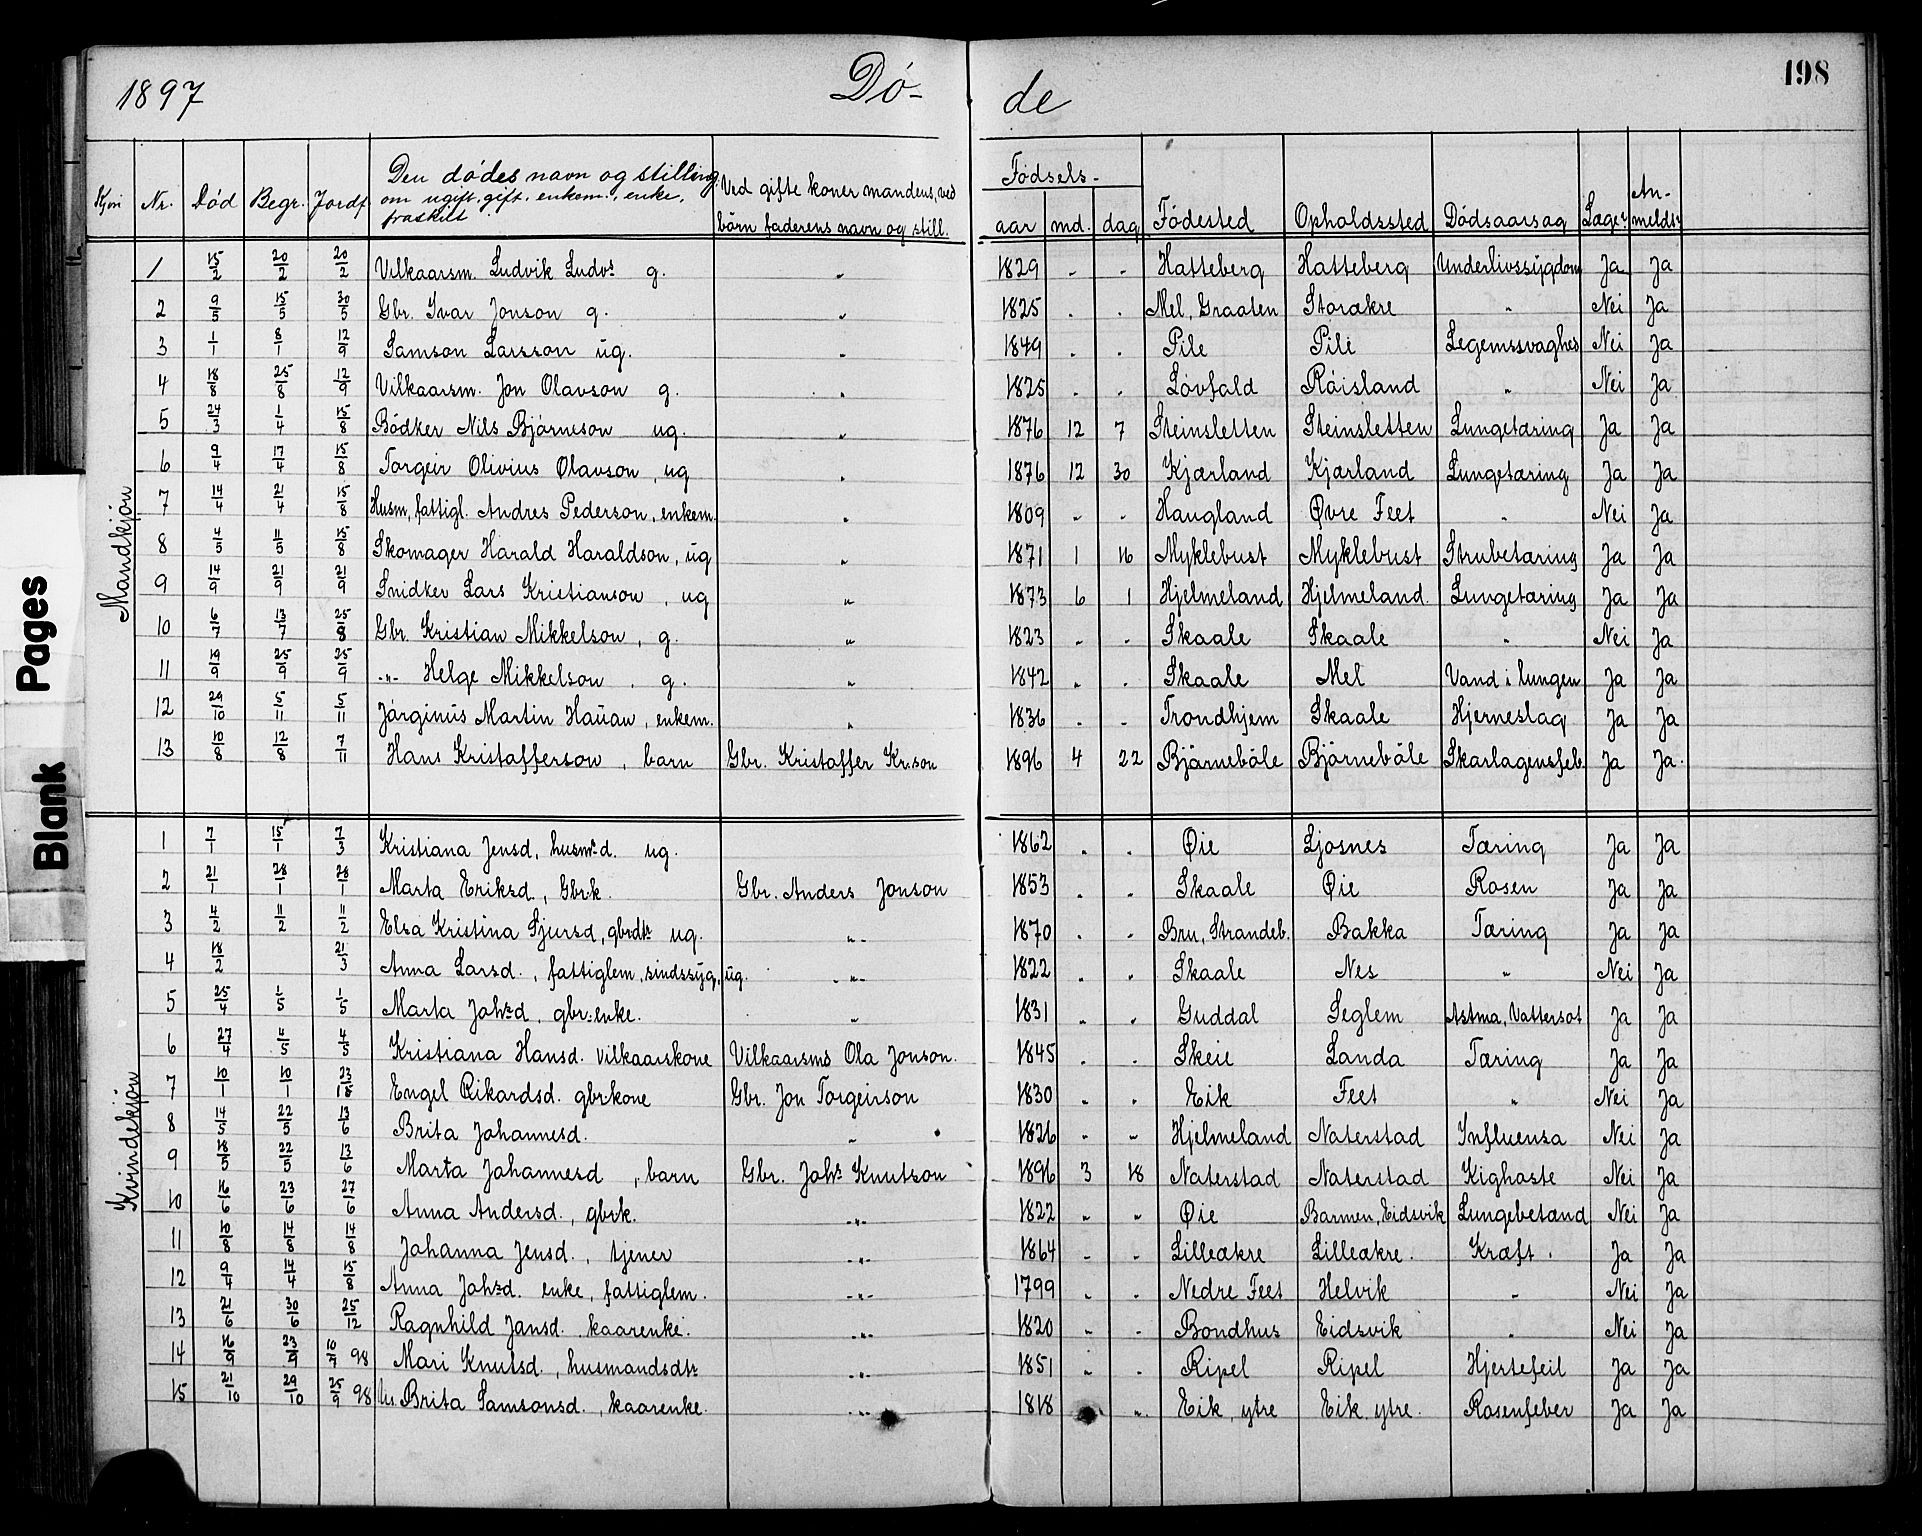 1897 Dø- de 198
Kjøn Nr. Død Begr. Jordf. Den dødes navn og stilling, om ugift, gift, enkem., enke, fraskilt Ved gifte koner mandens, ved børn faderens navn og still. Fødsels- aar md. dag Fødested Opholdssted Dødsaarsag Læge? An-meldt?
Mandkjøn
1 15/2 20/2 20/2 Vilkaarsm. Ludvik Ludvs g. " 1829 " " Hatteberg Hatteberg Underlivssygdom Ja Ja
2 9/5 15/5 30/5 Gbr. Ivar Jonson g. " 1825 " " Mel, Graaten Storakre " Nei Ja
3 1/1 8/1 12/9 Samson Larsson ug. " 1849 " " Pile Pile Legemssvaghed Nei Ja
4 18/8 25/8 12/9 Vilkaarsm. Jon Olavson g. " 1825 " " Løvfald Røisland " Nei Ja
5 24/3 1/4 15/8 Bødker Nils Bjørneson ug. " 1876 12 7 Steinsletten Steinsletten Lungetæring Ja Ja
6 9/4 17/4 15/8 Torgeir Olivius Olavson, ug " 1876 12 30 Kjærland Kjærland Lungetæring Ja Ja
7 14/4 21/4 15/8 Husm, fattigl. Andres Pederson, enkem. " 1809 " " Haugland Øvre Feet " Nei Ja
8 4/5 11/5 15/8 Skomager Harald Haraldson, ug " 1871 1 16 Myklebust Myklebust Strubetæring Ja Ja
9 14/9 21/9 21/9 Snidker Lars Kristianson, ug " 1873 6 1 Hjelmeland Hjelmeland. Lungetæring Ja Ja
10 6/7 13/7 25/8 Gbr. Kristian Mikkelson, g. " 1823 " " Skaale Skaale " Nei Ja
11 19/9 25/9 25/9 -"- Helge Mikkelson. g. " 1842 " " Skaale Mel Vand i lungen Ja Ja
12 29/10 5/11 5/11 Jørginus Martin Hauan, enkem. " 1836 " " Trondhjem Skaale Hjerneslag Ja Ja
13 10/8 12/8 7/11 Hans Kristofferson, barn Gbr. Kristoffer Kr.son 1896 4 22 Bjørnebøle Bjørnebøle Skarlagensfeb. Ja Ja.
Kvindekjøn
1 7/1 15/1 7/3 Kristiana Jensd, husmsd. ug. 1862 " " Øie Ljosnes Tæring Ja Ja
2 21/1 28/1 28/1 Marta Eriksd, Gbr.k. Gbr. Anders Jonson 1853 " " Skaale Øie Rosen Ja Ja
3 4/2 11/2 11/2 Elsa Kristina Sjursd, gbrdtr ug. -"- 1870 " " Bru, Strandeb. Bakka Tæring Ja Ja
4 18/2 21/3 Anna Larsd., fattiglem, sindssyg, ug. -"- 1822 " " Skaale Nes " Nei Ja
5 25/4 1/5 1/5 Marta Johsd, gbr.enke. " 1831 " " Guddal Seglem Astma, Vattersot Ja Ja
6 27/4 4/5 4/5 Kristiana Hansd. vilkaarskone Vilkaarsms Ola Jonson. 1845 " " Skeie Landa Tæring Ja Ja
7 10/1 10/1 23/18 Engel Rikardsd. gbrkone Gbr. Jon Torgeirson 1830 " " Eik Feet " Nei Ja
8 14/5 22/5 13/6 Brita Johannesd. " 1826 " " Hjelmeland Naterstad Influensa Nei Ja
9 18/5 22/5 13/6 Marta Johannesd, barn Gbr. Johs Knutson 1896 3 18 Naterstad Naterstad Kighoste Nei Ja
10 16/6 23/6 27/6 Anna Andersd., gbrk. -"- 1822 " " Øie Barmen, Eidsvik Lungebetænd Nei Ja
11 10/8 14/8 14/8 Johanna Jensd., tjener -"- 1864 " " Lilleakre Lilleakre. Kræft. Ja Ja
12 9/4 14/4 15/8 Anna Johsd. enke, fattiglem. -"- 1799 " " Nedre Feet Helvik " Nei Ja
13 21/6 30/6 25/12 Ragnhild Jansd., kaarenke. -"- 1820 " " Bondhus Eidsvik " Nei Ja
14 16/9 23/9 10/7 98 Mari Knutsd, husmandsdtr -"- 1851 " " Ripel Ripel Hjertefeil Ja Ja
15 21/10 29/10 25/9 98 Brita Samsonsd., kaarenke. -"- 1818 " Eik, ytre Eik ytre. Rosenfeber Ja Ja
Blank Pages